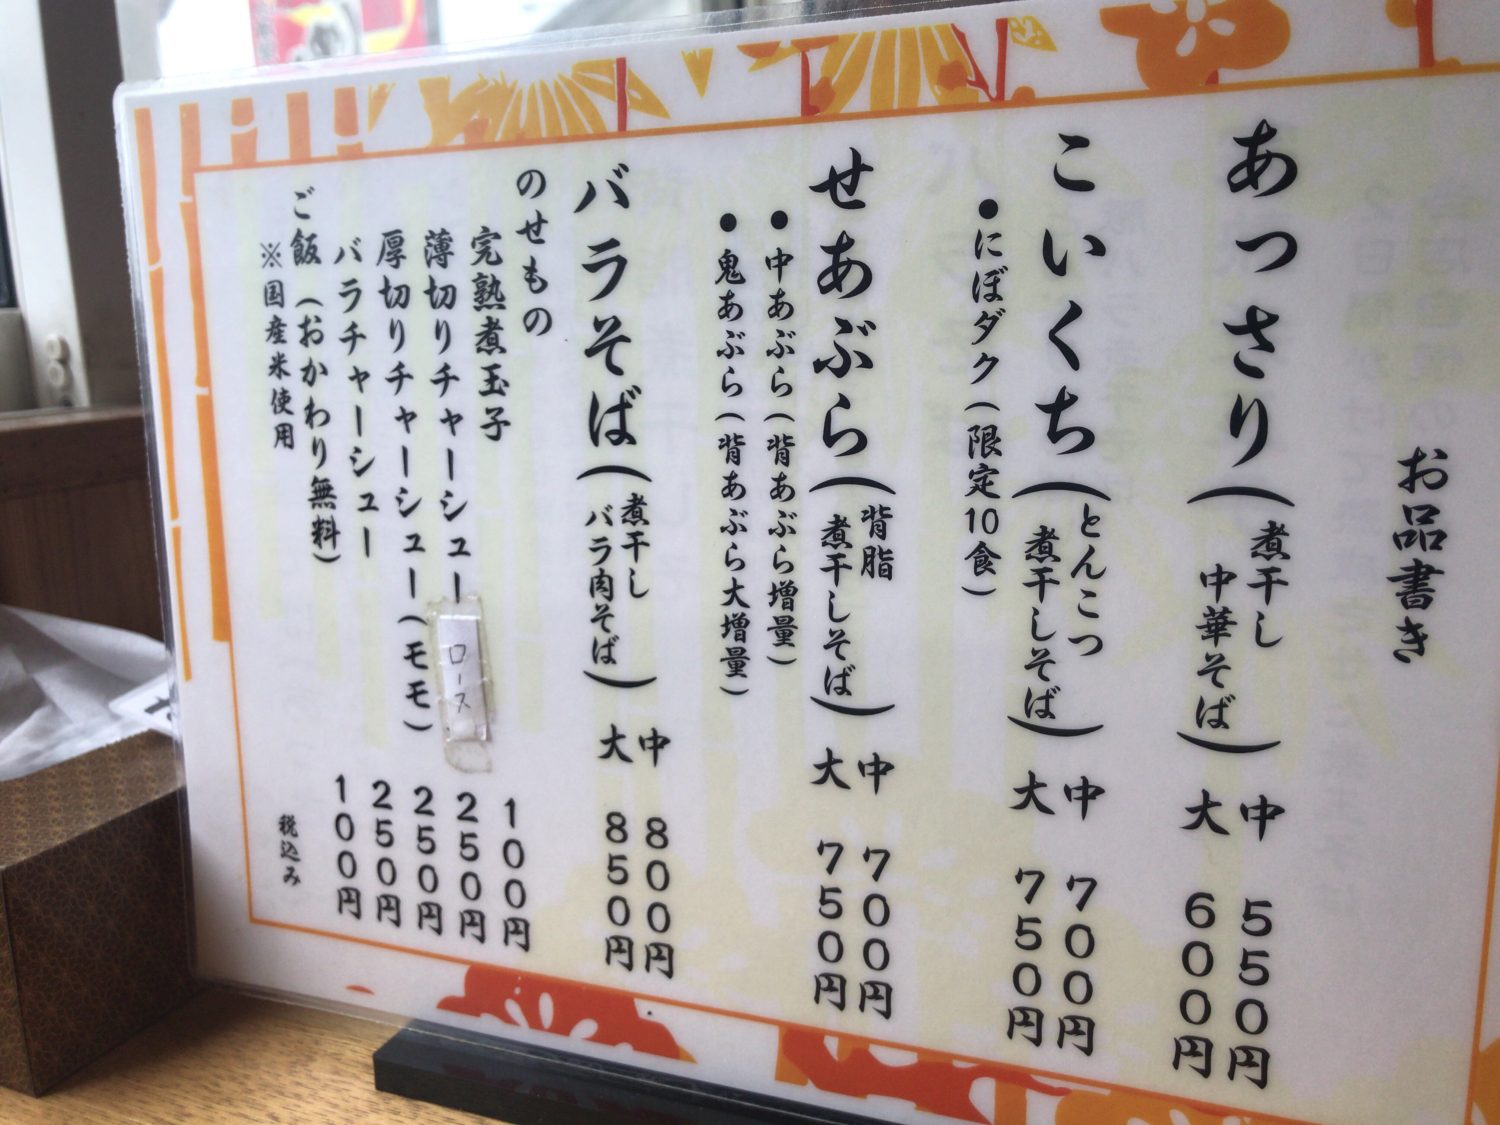 お品書き
あっさり（煮干し中華そば） 中 550円
大 600円
こいくち（とんこつ煮干しそば） 中 700円
大 750円
●にぼダク（限定10食）
せあぶら（背脂煮干しそば） 中 700円
大 750円
●中あぶら（背あぶら増量）
●鬼あぶら（背あぶら大増量）
バラそば（煮干しバラ肉そば） 中 800円
大 850円
のせもの
完熟煮玉子 100円
薄切りチャーシュー ロース 250円
厚切りチャーシュー（モモ） 250円
バラチャーシュー 250円
ご飯（おかわり無料） 100円
※国産米使用
税込み